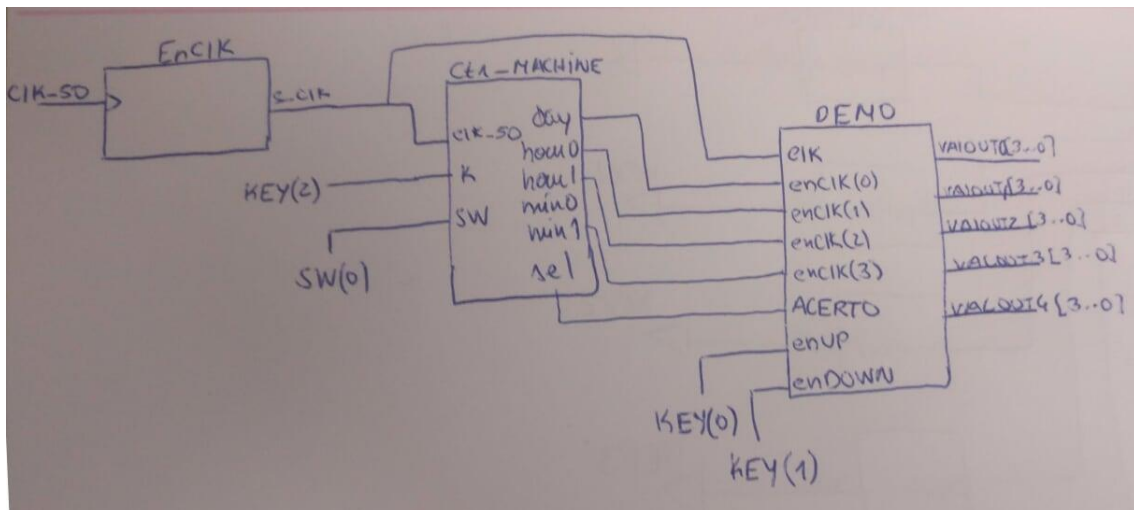 EnClK
ClK-50
s_ClK
Ct1-MACHINE
clK-50
K
SW
day
hour0
hour1
min0
min1
sel
KEY(2)
SW(0)
DEMO
clK
enClK(0)
enClK(1)
enClK(2)
enClK(3)
ACERTO
enUP
enDOWN
VALOUT0[3..0]
VALOUT1[3..0]
VALOUT2[3..0]
VALOUT3[3..0]
VALOUT4[3..0]
KEY(0)
KEY(1)